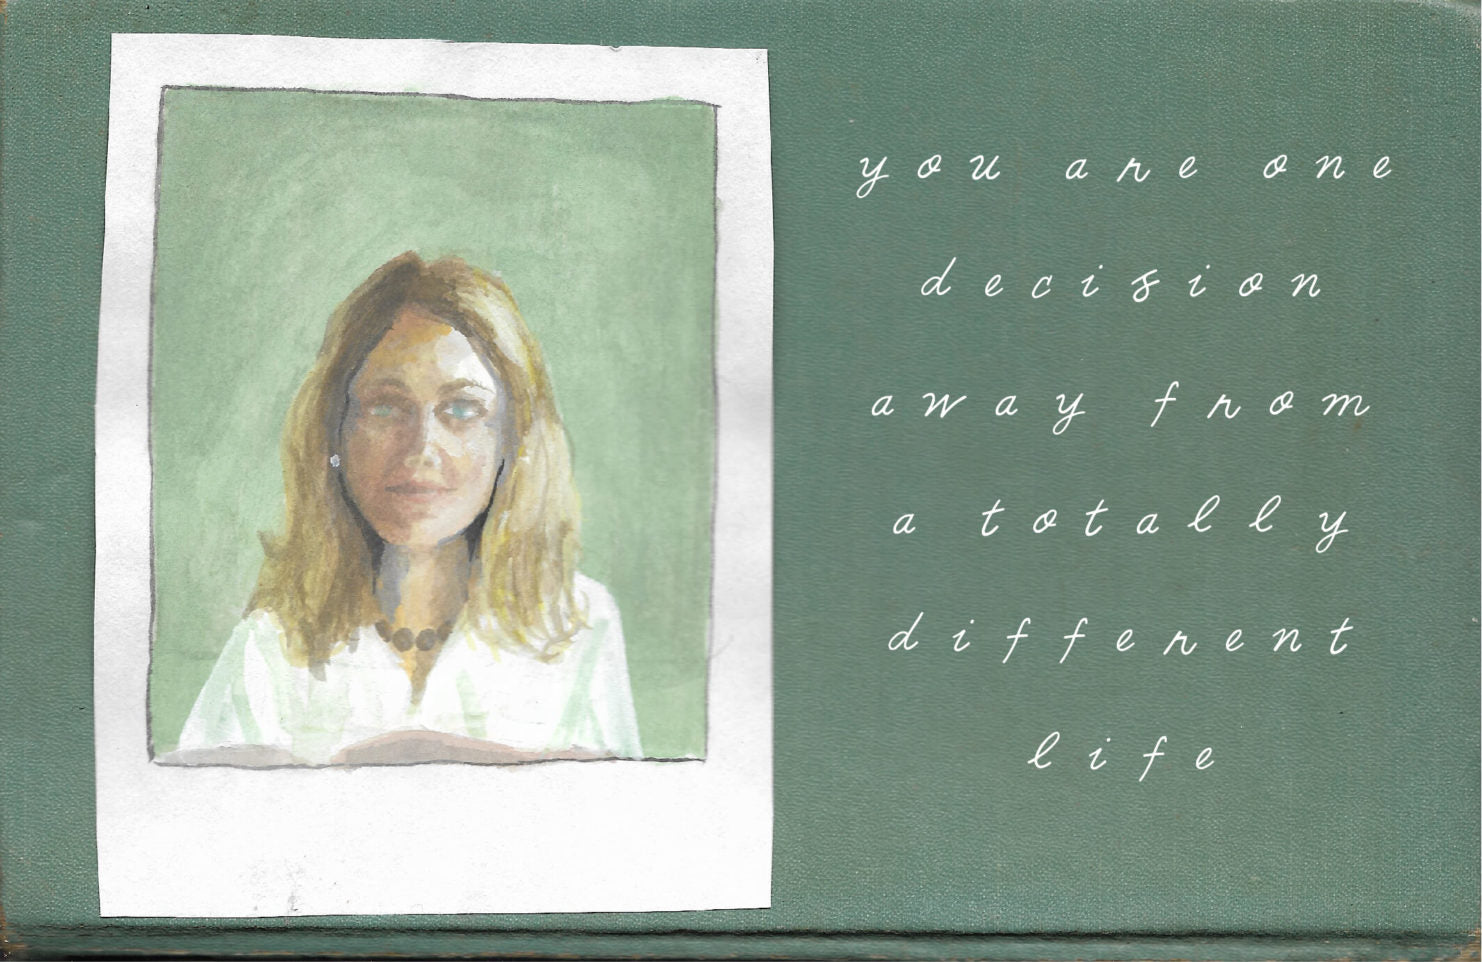 you are one
decision
away from
a totally
different
life